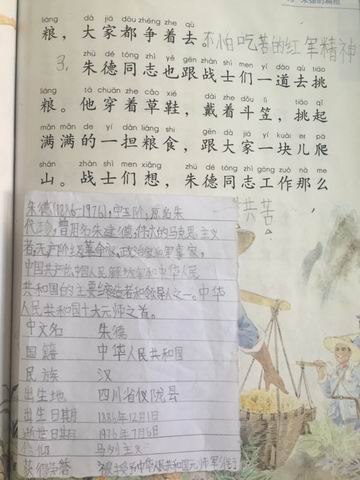 朱德的扁担
liáng dà jiā dōu zhēng zhe qù
粮，大家都争着去。不怕吃苦的红军精神
zhū dé tóng zhì yě gēn zhàn shì men yí dào qù tiāo
3. 朱德同志也跟战士们一道去挑
liáng tā chuān zhe cǎo xié dài zhe dǒu lì tiāo qǐ
粮。他穿着草鞋，戴着斗笠，挑起
mǎn mǎn de yí dàn liáng shi gēn dà jiā yí kuài er pá
满满的一担粮食，跟大家一块儿爬
shān zhàn shì men xiǎng zhū dé tóng zhì gōng zuò nà me
山。战士们想，朱德同志工作那么
共苦
朱德(1886-1976)，字玉阶，原名朱
代珍，曾用名朱建德，伟大的马克思主义
者，无产阶级革命家，政治家和军事家，
中国共产党，中国人民解放军和中华人民
共和国的主要缔造者和领导人之一。中华
人民共和国十大元帅之首。
中文名 朱德
国籍 中华人民共和国
民族 汉
出生地 四川省仪陇县
出生日期 1886年12月1日
逝世日期 1976年7月6日
信仰 马列主义
中华人民共和国元帅